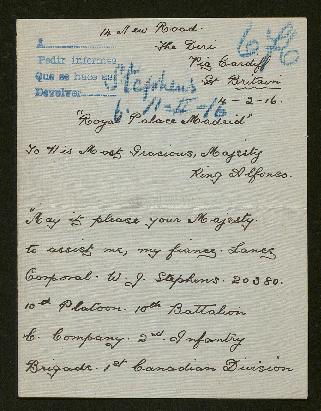 14 New Road.
The Deri
Via Cardiff
Gt Britain
14-2-16.
A
Pedir informes
Que se hace así
Devolver
Stephens
"Royal Palace Madrid"
To His Most Gracious, Majesty
King Alfonso.
"May it please your Majesty.
to assist me, my fiance. Lance
Corporal. W. J. Stephens. 20380.
10th Platoon. 10th Battalion
C. Company. 2nd. Infantry
Brigade. 1st Canadian Division